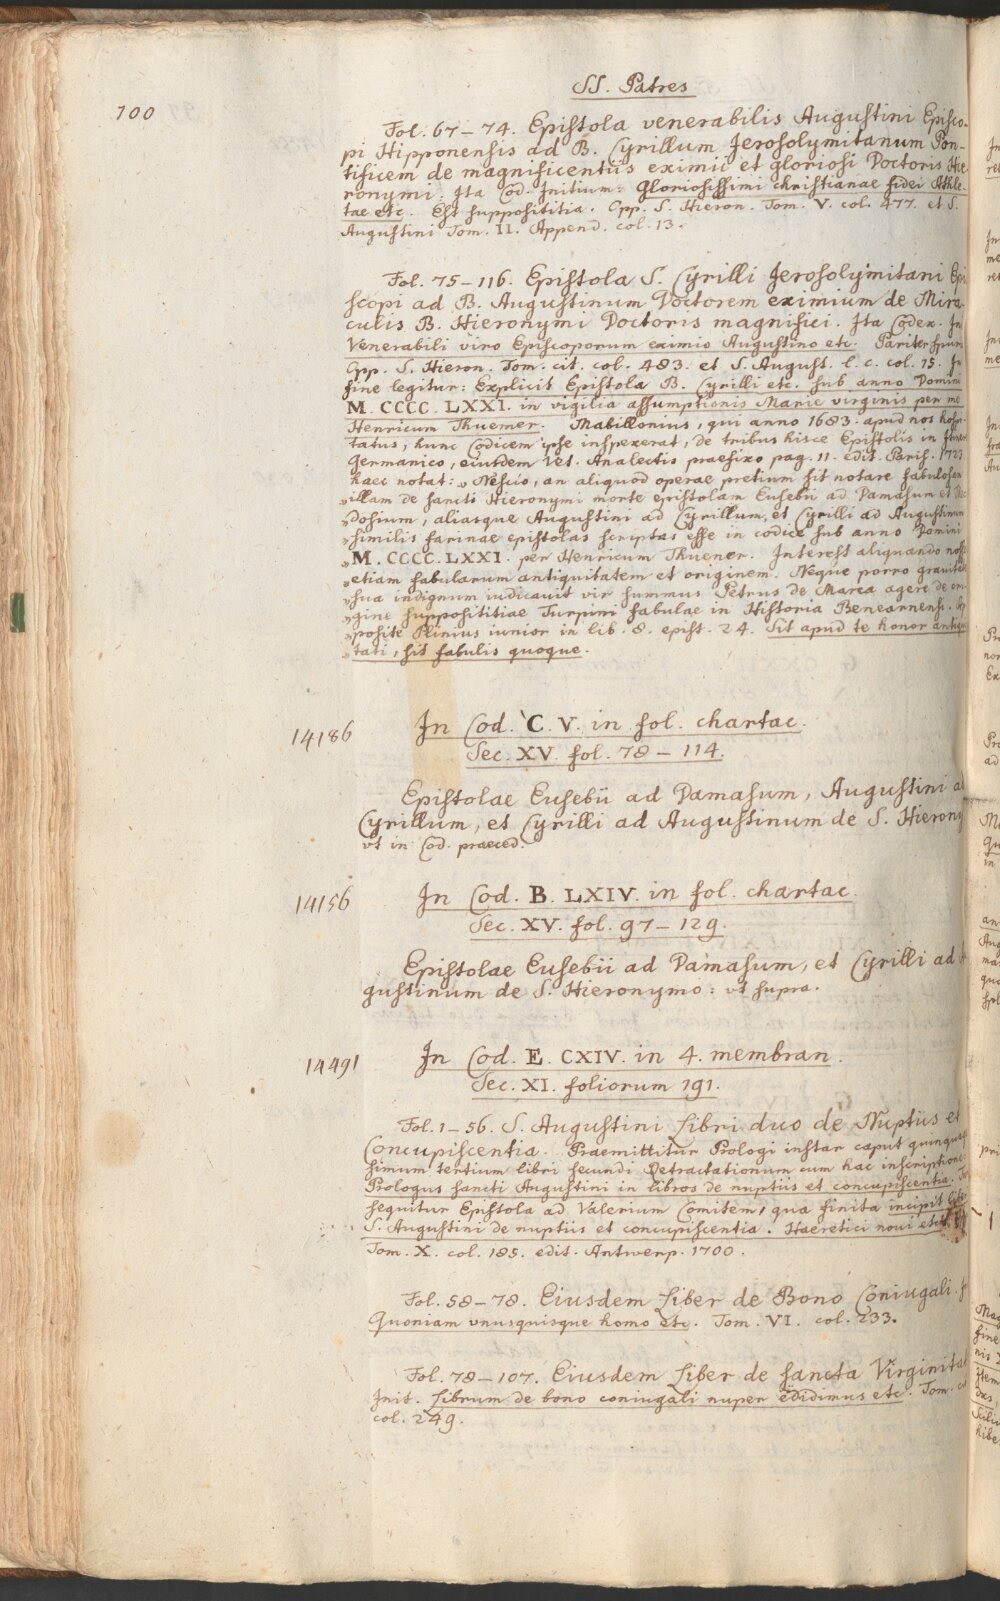 SS. Patres
100
Fol. 67–74. Epistola venerabilis Augustini Episco-
pi Hipponensis ad B. Cyrillum Jerosolymitanum Pon-
tificem de magnificentiis eximii et gloriosi Doctoris Hie-
ronymi. Ita Cod. Initium: Gloriosissimi christianae fidei Athle-
tae etc. Est supposititia. Opp. S. Hieron. Tom. V. col. 477. et S.
Augustini Tom. II. Append. col. 13.
Fol. 75–116. Epistola S. Cyrilli Jerosolymitani Epi
scopi ad B. Augustinum Doctorem eximium de Mira-
culis B. Hieronymi Doctoris magnifici. Ita Codex. In
Venerabili viro Episcoporum eximio Augustino etc. Pariter spuria
Opp. S. Hieron. Tom. cit. col. 483. et S. August. l. c. col. 15. In
fine legitur: Explicit Epistola B. Cyrilli etc. sub anno Domini
M. CCCC. LXXI. in vigilia assumptionis Marie virginis per me
Henricum Thuemer. Mabillonius, qui anno 1683. apud nos hospi
tatus, hunc Codicem ipse inspexerat, de tribus hisce Epistolis in Itiner
Germanico, eiusdem Vet. Analectis praefixo pag. 11. edit. Paris. 1723
haec notat: „Nescio, an aliquod operae pretium sit notare fabulosam
„illam de sancti Hieronymi morte epistolam Eusebii ad Damasum et The
„dosium, aliasque Augustini ad Cyrillum, et Cyrilli ad Augustinum
„similis farinae epistolas scriptas esse in codice sub anno Domini
„M. CCCC. LXXI. per Henricum Thuener. Interest aliquando nosse
„etiam fabularum antiquitatem et originem. Neque porro gravitate
„sua indignum iudicauit vir summus Petrus de Marca agere de ori
„gine supposititiae Turpini fabulae in Historia Benearnensi.
„posite Plinius iunior in lib. 8. epist. 24. Sit apud te honor antiqui
„tati, sit fabulis quoque.
14186
In Cod. C. V. in fol. chartac.
Sec. XV. fol. 78 – 114.
Epistolae Eusebii ad Damasum, Augustini ad
Cyrillum, et Cyrilli ad Augustinum de S. Hierony
vt in Cod. praeced.
14156
In Cod. B. LXIV. in fol. chartac.
Sec. XV. fol. 97 – 129.
Epistolae Eusebii ad Damasum, et Cyrilli ad
gustinum de S. Hieronymo: vt supra.
14491
In Cod. E. CXIV. in 4. membran.
Sec. XI. foliorum 191.
Fol. 1–56. S. Augustini Libri duo de Nuptiis et
Concupiscentia. Praemittitur Prologi instar caput quinquage
simum tertium libri secundi Retractationum cum hac inscriptione:
Prologus sancti Augustini in libros de nuptiis et concupiscentia.
sequitur Epistola ad Valerium Comitem, qua finita incipit liber
S. Augustini de nuptiis et concupiscentia. Haeretici noui etc.
Tom. X. col. 185. edit. Antwerp. 1700.
Fol. 58–78. Eiusdem Liber de Bono Coniugali.
Quoniam vnusquisque homo etc. Tom. VI. col. 233.
Fol. 78–107. Eiusdem Liber de sancta Virginitat
Init. Librum de bono coniugali nuper edidimus etc. Tom. cit
col. 249.